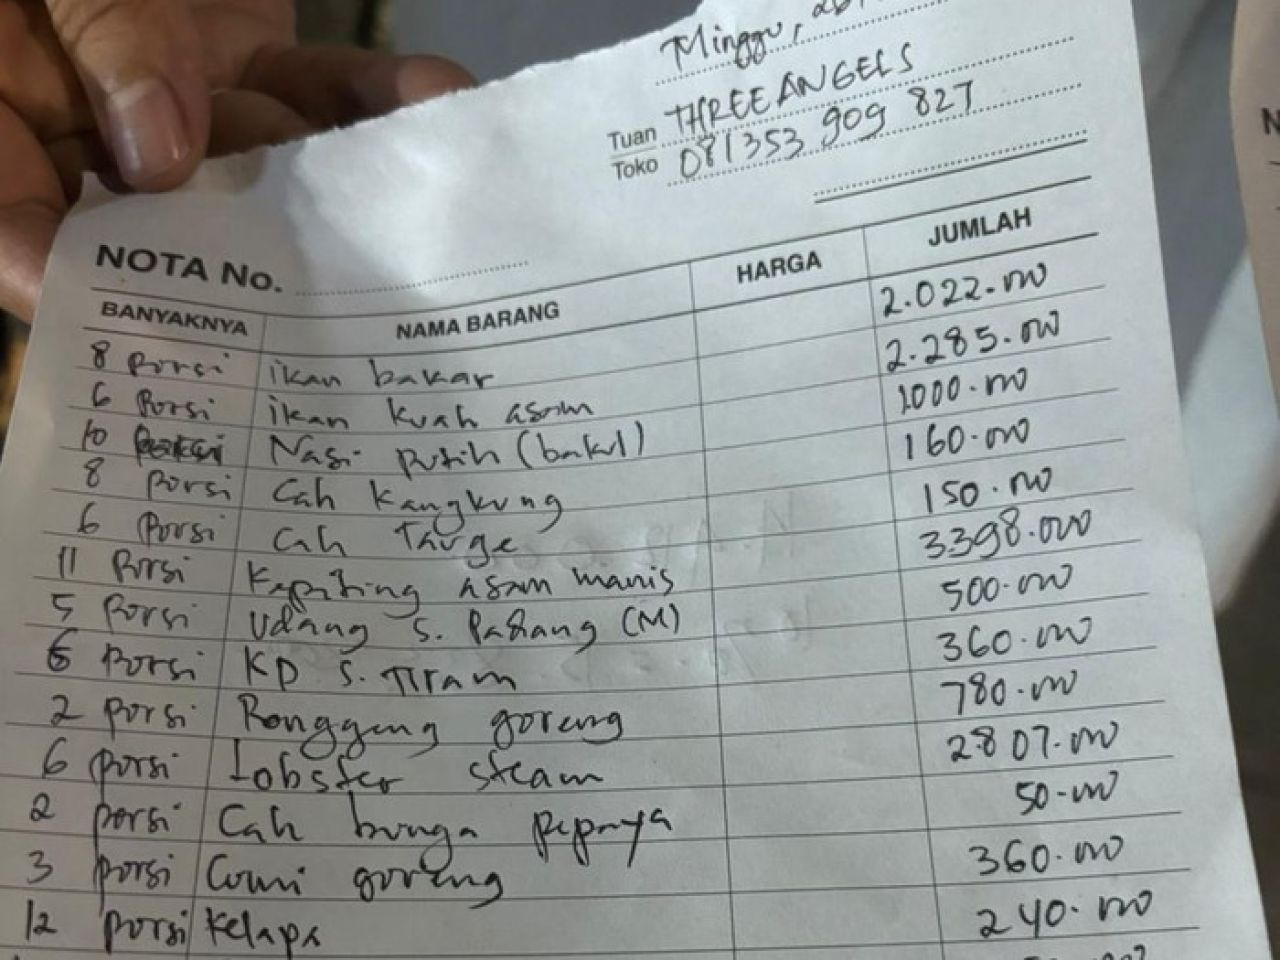 Minggu,
Tuan THREE ANGELS
Toko 081353 909 827
NOTA No.
BANYAKNYA NAMA BARANG HARGA JUMLAH
8 Porsi ikan bakar 2.022.000
6 Porsi ikan kuah asam 2.285.000
10 Nasi putih (bakul) 1000.000
8 Porsi Cah Kangkung 160.000
6 Porsi Cah Tauge 150.000
11 Porsi Kepiting asam manis 3398.000
5 Porsi Udang s. Padang (M) 500.000
6 Porsi KP s. Tiram 360.000
2 Porsi Ronggeng goreng 780.000
6 Porsi Lobster steam 2807.000
2 porsi Cah bunga pepaya 50.000
3 porsi Cumi goreng 360.000
12 porsi Kelapa 240.000